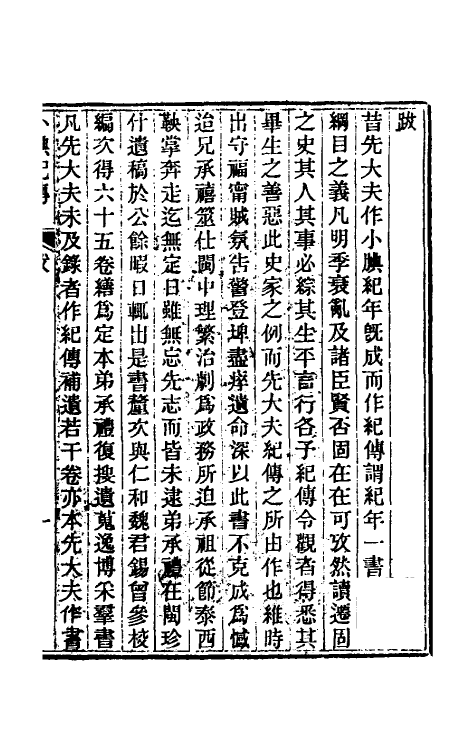 跋
昔先大夫作小腆紀年既成而作紀傳謂紀年一書
綱目之義凡明季衰亂及諸臣賢否固在在可攷然讀遷固
之史其人其事必綜其生平言行各予紀傳令觀者得悉其
畢生之善惡此史家之例而先大夫紀傳之所由作也維時
出守福甯賊氛告警登埤盡瘁遺命深以此書不克成爲憾
迨兄承禧筮仕閩中理繁治劇爲政務所迫承祖從節泰西
鞅掌奔走迄無定日雖無忘先志而皆未逮弟承禮在閩珍
什遺稿於公餘暇日輒出是書釐次與仁和魏君錫曾參校
編次得六十五卷繕爲定本弟承禮復搜遺蒐逸博采羣書
凡先大夫未及錄者作紀傳補遺若干卷亦本先大夫作書
小腆紀傳 跋 一